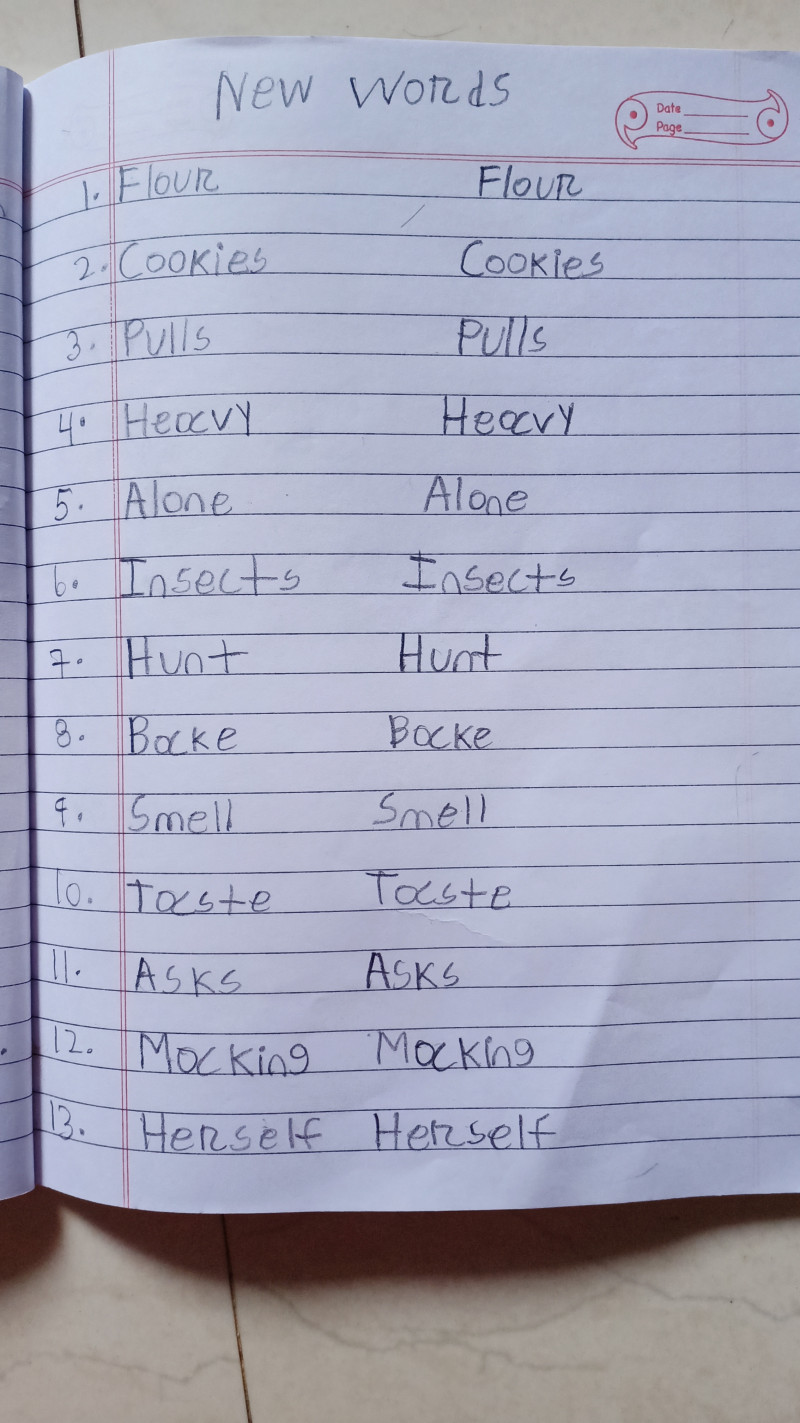 New Words
Date
Page
1. Flour Flour
2. Cookies Cookies
3. Pulls Pulls
4. Heavy Heavy
5. Alone Alone
6. Insects Insects
7. Hunt Hunt
8. Bake Bake
9. Smell Smell
10. Taste Taste
11. Asks Asks
12. Making Making
13. Herself Herself